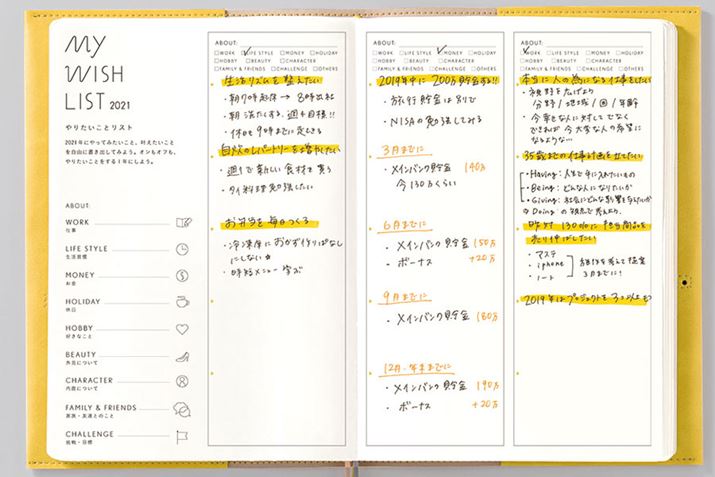 MY
WISH
LIST 2021
やりたいことリスト
2021年にやってみたいこと、叶えたいこと
を自由に書き出してみよう。オンもオフも、
やりたいことをする1年にしよう。
ABOUT:
WORK
仕事
LIFE STYLE
生活習慣
MONEY
お金
HOLIDAY
休日
HOBBY
好きなこと
BEAUTY
外見について
CHARACTER
内面について
FAMILY & FRIENDS
家族・友達とのこと
CHALLENGE
挑戦・目標
ABOUT:
WORK LIFE STYLE MONEY HOLIDAY
HOBBY BEAUTY CHARACTER
FAMILY & FRIENDS CHALLENGE OTHERS
生活リズムを整えたい
・朝7時起床→8時出社
・朝活たす
・休日も9時までに起きる
自炊のレパートリーを増やしたい
・週1で新しい食材を買う
・タイ料理 勉強したい
お弁当を毎日つくる
・冷凍庫におかず作りぱなし
にしない
・時短メニュー学ぶ
ABOUT:
WORK LIFE STYLE MONEY HOLIDAY
HOBBY BEAUTY CHARACTER
FAMILY & FRIENDS CHALLENGE OTHERS
2019年中に200万貯金する!!
・旅行貯金は別で
・NISAの勉強してみる
3月までに
・メインバンク貯金 140万
今130万くらい
6月までに
・メインバンク貯金 150万
・ボーナス +20万
9月までに
・メインバンク貯金 180万
12月・年末までに
・メインバンク貯金 190万
・ボーナス +20万
ABOUT:
WORK LIFE STYLE MONEY HOLIDAY
HOBBY BEAUTY CHARACTER
FAMILY & FRIENDS CHALLENGE OTHERS
本当に人の為になる仕事をしたい
・視野を広げよう
分野/地域/国/年齢
・今幸せな人に対してでなく
できれば今大変な人の希望に
なるような…
35歳までの仕事計画を立てたい
・Having: 人生で手に入れたいもの
・Being: どんな人になりたいか
・Giving: 社会にどんな影響を与えたいか
Doingの視点で考えよう。
昨対130%に担当商品を
売り伸ばしたい
・マステ
・iphone
・ノート
3月までに!
2019年はプロジェクトを3つ以上もつ